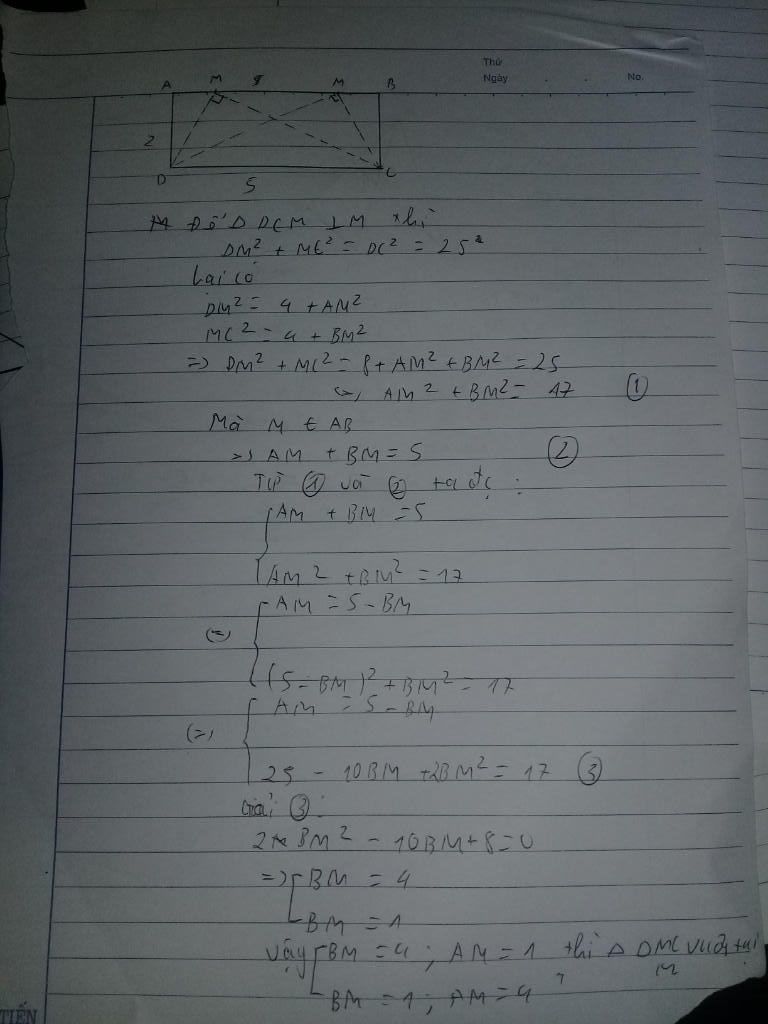 Thứ
Ngày . . No.
A M M B
2
D 5 C
Để Δ DCM ⊥ M thì
DM² + MC² = DC² = 25
Lại có
DM² = 4 + AM²
MC² = 4 + BM²
=> DM² + MC² = 8 + AM² + BM² = 25
<=> AM² + BM² = 17 ①
Mà M ∈ AB
=> AM + BM = 5 ②
Từ ① và ② ta đc :
AM + BM = 5
AM² + BM² = 17
(=) AM = 5 - BM
(5 - BM)² + BM² = 17
(=) AM = 5 - BM
25 - 10BM + 2BM² = 17 ③
Giải ③ :
2 BM² - 10BM + 8 = 0
=> BM = 4
BM = 1
Vậy BM = 4 ; AM = 1 thì Δ DMC vuông tại
M
BM = 1 ; AM = 4
TIẾN